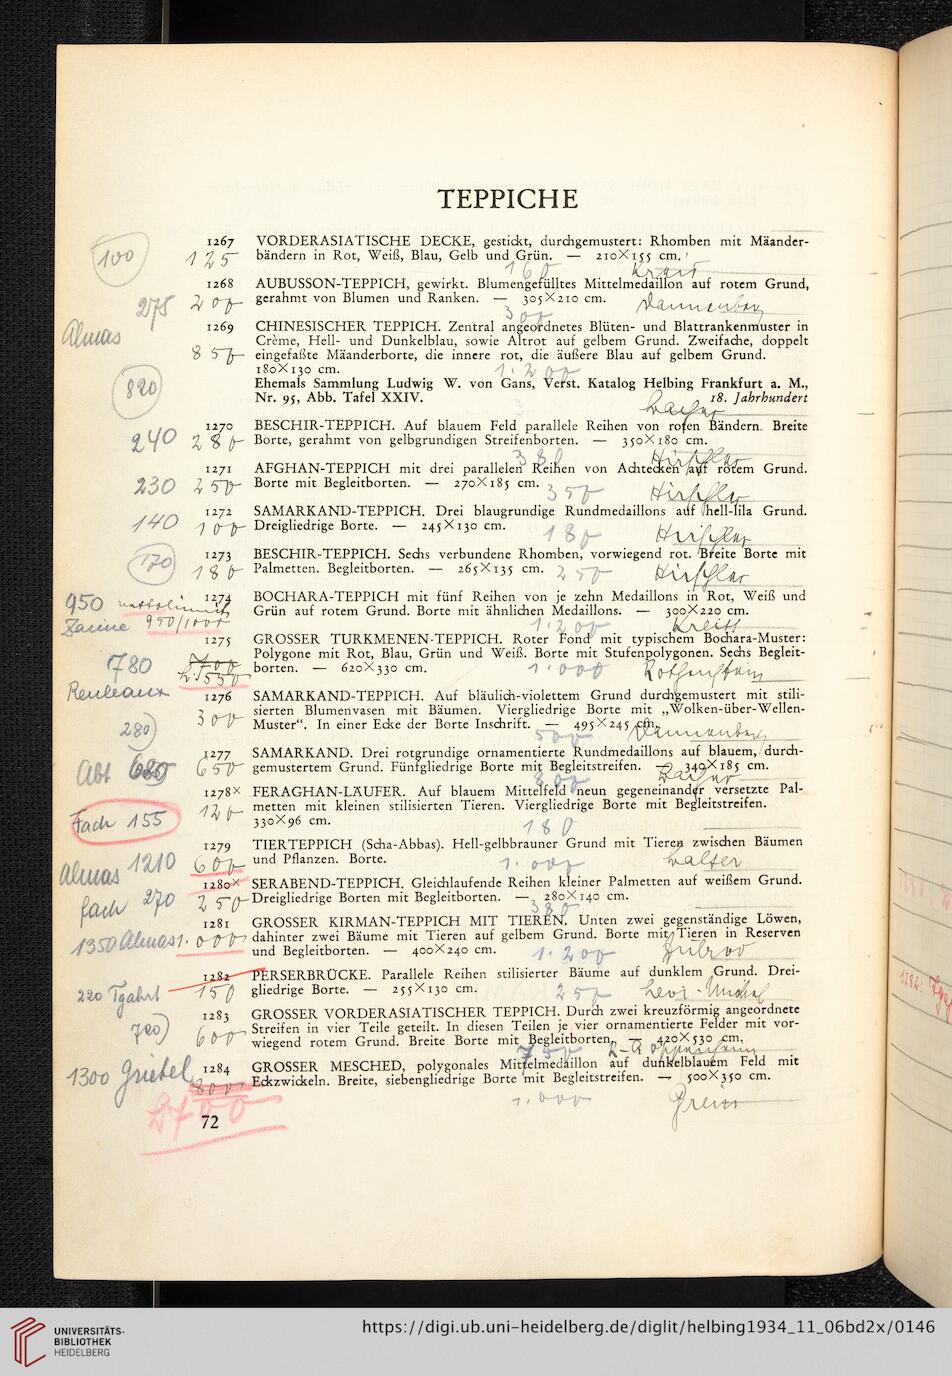 TEPPICHE
100
1267 VORDERASIATISCHE DECKE, gestickt, durchgemustert: Rhomben mit Mäander-
125 bändern in Rot, Weiß, Blau, Gelb und Grün. — 210×155 cm.
160
1268 AUBUSSON-TEPPICH, gewirkt. Blumengefülltes Mittelmedaillon auf rotem Grund,
275 200 gerahmt von Blumen und Ranken. — 305×210 cm. Dannenberg
300
Almas 1269 CHINESISCHER TEPPICH. Zentral angeordnetes Blüten- und Blattrankenmuster in
Crème, Hell- und Dunkelblau, sowie Altrot auf gelbem Grund. Zweifache, doppelt
850 eingefaßte Mäanderborte, die innere rot, die äußere Blau auf gelbem Grund.
180×130 cm. 1.200
820 Ehemals Sammlung Ludwig W. von Gans, Verst. Katalog Helbing Frankfurt a. M.,
Nr. 95, Abb. Tafel XXIV. 18. Jahrhundert
1270 BESCHIR-TEPPICH. Auf blauem Feld parallele Reihen von roten Bändern. Breite
240 280 Borte, gerahmt von gelbgrundigen Streifenborten. — 350×180 cm.
380 Hirschler
1271 AFGHAN-TEPPICH mit drei parallelen Reihen von Achtecken auf rotem Grund.
230 250 Borte mit Begleitborten. — 270×185 cm. 350 Hirschler
1272 SAMARKAND-TEPPICH. Drei blaugrundige Rundmedaillons auf hell-lila Grund.
140 100 Dreigliedrige Borte. — 245×130 cm. 180 Hirschler
1273 BESCHIR-TEPPICH. Sechs verbundene Rhomben, vorwiegend rot. Breite Borte mit
170 180 Palmetten. Begleitborten. — 265×135 cm. 250 Hirschler
950 1274 BOCHARA-TEPPICH mit fünf Reihen von je zehn Medaillons in Rot, Weiß und
Grün auf rotem Grund. Borte mit ähnlichen Medaillons. — 300×220 cm.
950/1000 1.200
1275 GROSSER TURKMENEN-TEPPICH. Roter Fond mit typischem Bochara-Muster:
780 Polygone mit Rot, Blau, Grün und Weiß. Borte mit Stufenpolygonen. Sechs Begleit-
borten. — 620×330 cm. 1.000 Rothenstein
Reuleaux 1276 SAMARKAND-TEPPICH. Auf bläulich-violettem Grund durchgemustert mit stili-
300 sierten Blumenvasen mit Bäumen. Viergliedrige Borte mit „Wolken-über-Wellen-
280 Muster“. In einer Ecke der Borte Inschrift. — 495×245 cm.
500 Dannenberg
1277 SAMARKAND. Drei rotgrundige ornamentierte Rundmedaillons auf blauem, durch-
Abt 680 650 gemustertem Grund. Fünfgliedrige Borte mit Begleitstreifen. — 340×185 cm.
800
1278× FERAGHAN-LÄUFER. Auf blauem Mittelfeld neun gegeneinander versetzte Pal-
Fach 155 120 metten mit kleinen stilisierten Tieren. Viergliedrige Borte mit Begleitstreifen.
330×96 cm. 180
1279 TIERTEPPICH (Scha-Abbas). Hell-gelbbrauner Grund mit Tieren zwischen Bäumen
Almas 1210 600 und Pflanzen. Borte. 1.000
1280× SERABEND-TEPPICH. Gleichlaufende Reihen kleiner Palmetten auf weißem Grund.
Fach 270 250 Dreigliedrige Borten mit Begleitborten. — 280×140 cm.
380
1281 GROSSER KIRMAN-TEPPICH MIT TIEREN. Unten zwei gegenständige Löwen,
1350 Almas 1.000 dahinter zwei Bäume mit Tieren auf gelbem Grund. Borte mit Tieren in Reserven
und Begleitborten. — 400×240 cm. 1.200
1282 PERSERBRÜCKE. Parallele Reihen stilisierter Bäume auf dunklem Grund. Drei-
220 150 gliedrige Borte. — 255×130 cm. 250
1283 GROSSER VORDERASIATISCHER TEPPICH. Durch zwei kreuzförmig angeordnete
720 600 Streifen in vier Teile geteilt. In diesen Teilen je vier ornamentierte Felder mit vor-
wiegend rotem Grund. Breite Borte mit Begleitborten. — 420×530 cm.
750
1300 Griebel 1284 GROSSER MESCHED, polygonales Mittelmedaillon auf dunkelblauem Feld mit
800 Eckzwickeln. Breite, siebengliedrige Borte mit Begleitstreifen. — 500×350 cm.
1.000
72
UNIVERSITÄTS-
BIBLIOTHEK
HEIDELBERG
https://digi.ub.uni-heidelberg.de/diglit/helbing1934_11_06bd2x/0146